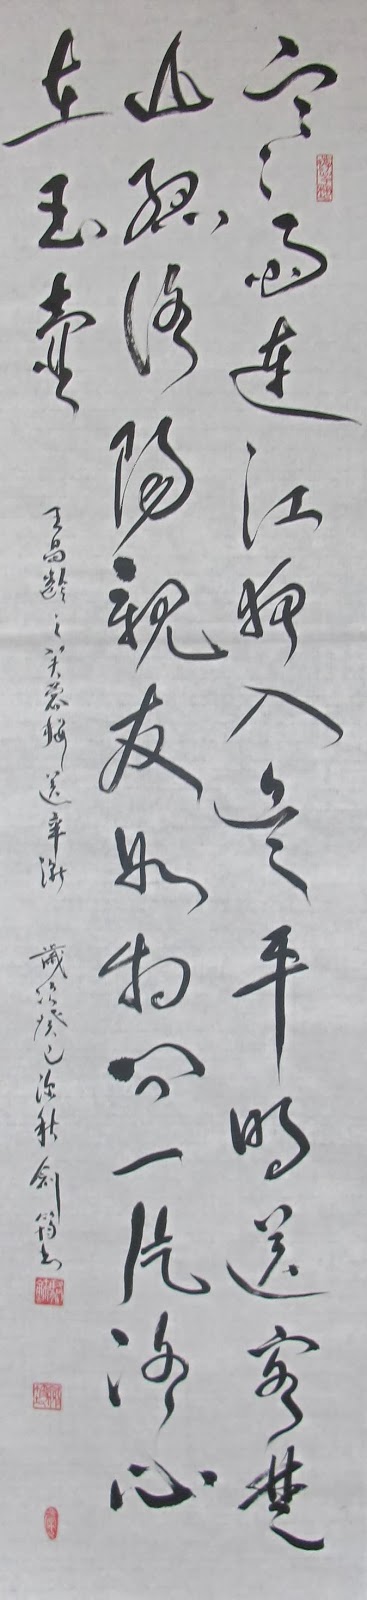 寒雨連江夜入吳平明送客楚
山孤洛陽親友如相問一片冰心
在玉壺
王昌齡之芙蓉樓送辛漸 歲次癸巳深秋 劍書